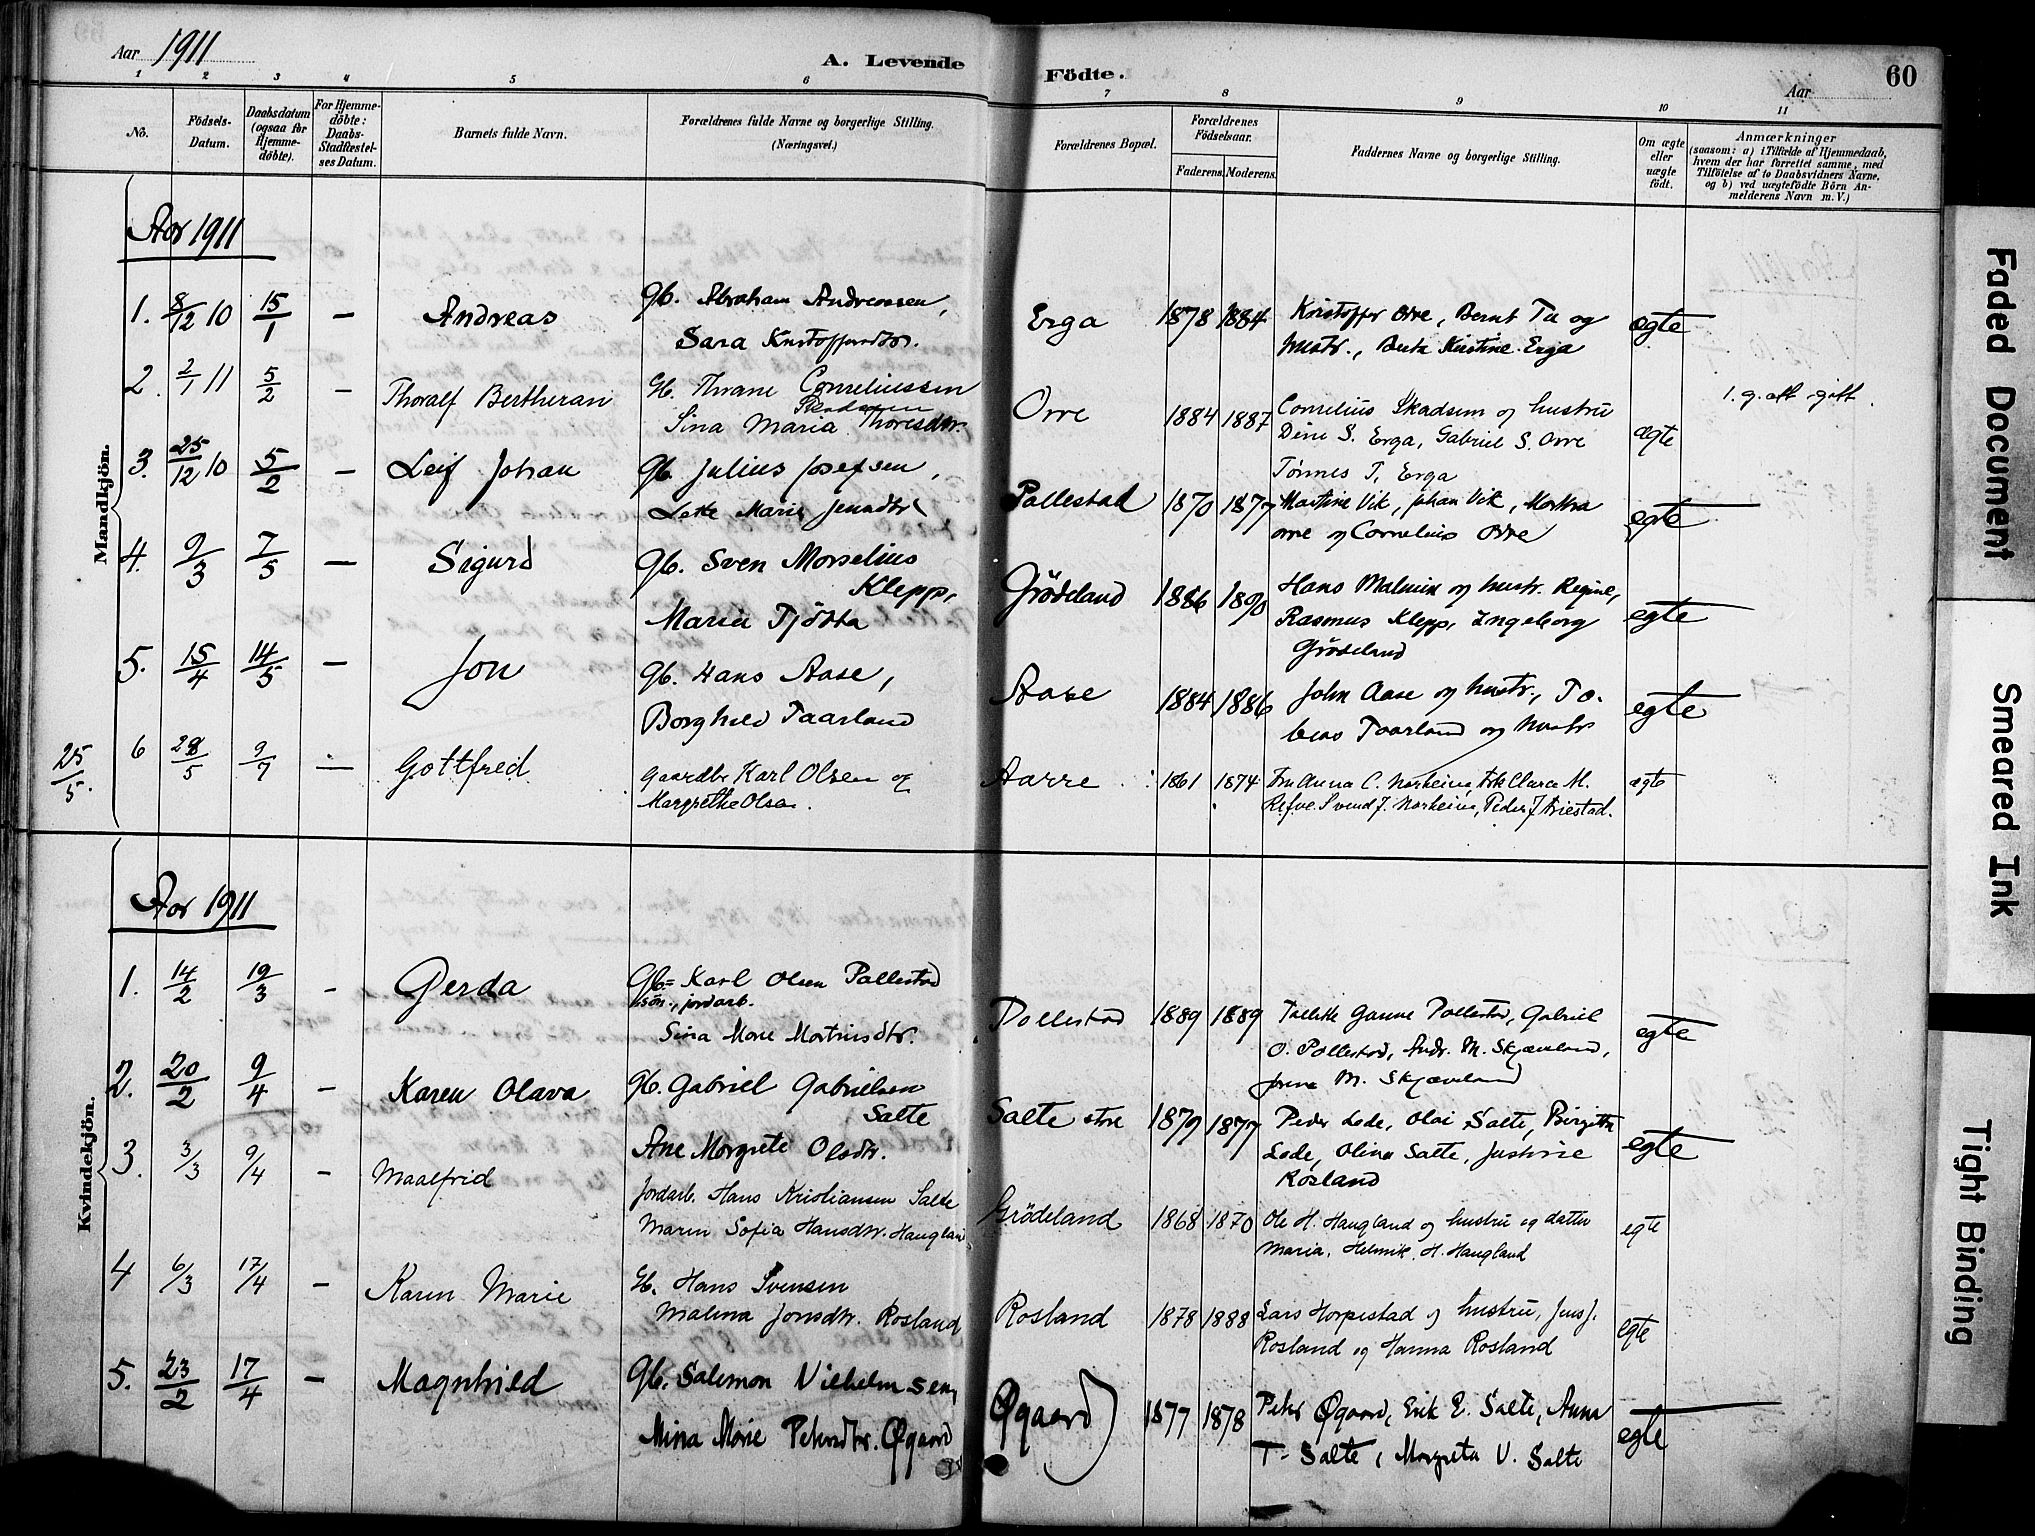 Aar 1911
A. Levende Födte.
Aar
60
1 2 3 4 5 6 7 8 9 10 11
No.
Födsels-Datum.
Daabsdatum (ogsaa for Hjemme-döbte).
For Hjemme-döbte: Daabs-Stadfæstel-ses Datum.
Barnets fulde Navn.
Forældrenes fulde Navne og borgerlige Stilling.
(Næringsvei.)
Forældrenes Bopæl.
Forældrenes Födselsaar.
Faderens. Moderens.
Faddernes Navne og borgerlige Stilling.
Om ægte eller uægte födt.
Anmærkninger
(saasom: a) i Tilfælde af Hjemmedaab,
hvem der har forrettet samme, med
Tilföielse af to Daabsvidners Navne.
og b) ved uægtefödte Börn An-
melderens Navn m. V.)
Mandkjön.
Aar 1911
1. 8/12 10 15/1 — Andreas Gb. Abraham Andreassen, Erga 1878 1884 Kristoffer Orre, Bernt Tu og ægte
Sara Kristoffersdtr. hustr., Berta Kirstine Erga
2. 2/1 11 5/2 — Thoralf Bertheran Gb. Thrane Corneliussen Orre 1884 1887 Cornelius Skadsem og hustru ægte 1. g. att. gift.
Skadsem
Sina Maria Thoresdtr. Dine S. Erga, Gabriel S. Orre
Tönnes T. Erga
3. 25/12 10 5/2 — Leif Johan Gb. Julius Josefsen, Pollestad 1870 1877 Martine Vik, Johan Vik, egte
Marie Orre og Cornelius Orre
4. 9/3 7/5 — Sigurd Gb. Sven Morselius Grödeland 1886 1890 Hans og hustr. Regine, egte
Klepp, Rasmus Klepp, Ingeborg
Maria Tjötta Grödeland
5. 15/4 14/5 — Jon Gb. Hans Aase, Aase 1884 1886 John Aase og hustr., To- egte
Borghild Taarland bias Taarland og hustr
25/5. 6 28/5 9/7 — Gottfred Gaardbr Karl Olsen og Aarre 1861 1874 Fru Anna C. Norheim, Frk Clara M. ægte
Margrethe Olsen. Refve. Svend J. Norheim, Peder J Friestad.
Kvindekjön.
Aar 1911
1. 14/2 19/3 - Gerda Gb= Karl Olsen Pollestad Pollestad 1889 1889 Gabriel egte
sön., jordarb. O. Pollestad, Andr. M. Skjæveland,
Sina Marie Martinsdtr. M. Skjæveland
2. 20/2 9/4 - Karen Olava Gb. Gabriel Gabrielsen Salte store 1879 1877 Peder Lode, Olai Salte, Birgitte egte
Salte Lode, Olina Salte, Justine
Ane Margrete Olsdtr. Rosland
3. 3/3 9/4 - Maalfrid Jordarb. Hans Kristiansen Salte Grödeland 1868 1870 Ole H. Haugland og hustru og datter egte
Maren Sofia Hansdtr. Haugland Maria, Helmik H. Haugland
4 6/3 17/4 - Karen Marie Gb. Hans Svensen Rosland 1878 1888 Lars Horpestad og hustru, Jens J. egte
Malena Jonsdtr. Rosland Rosland og Hanna Rosland
5. 23/2 17/4 - Magnhild Gb. Salomon Vilhelmsen, Øgaard 1877 1878 Peter Øgaard, Erik E. Salte, Anna egte
Mina Marie Petersdtr. Øgaard T. Salte, Margreta V. Salte
Faded Document
Smeared Ink
Tight Binding